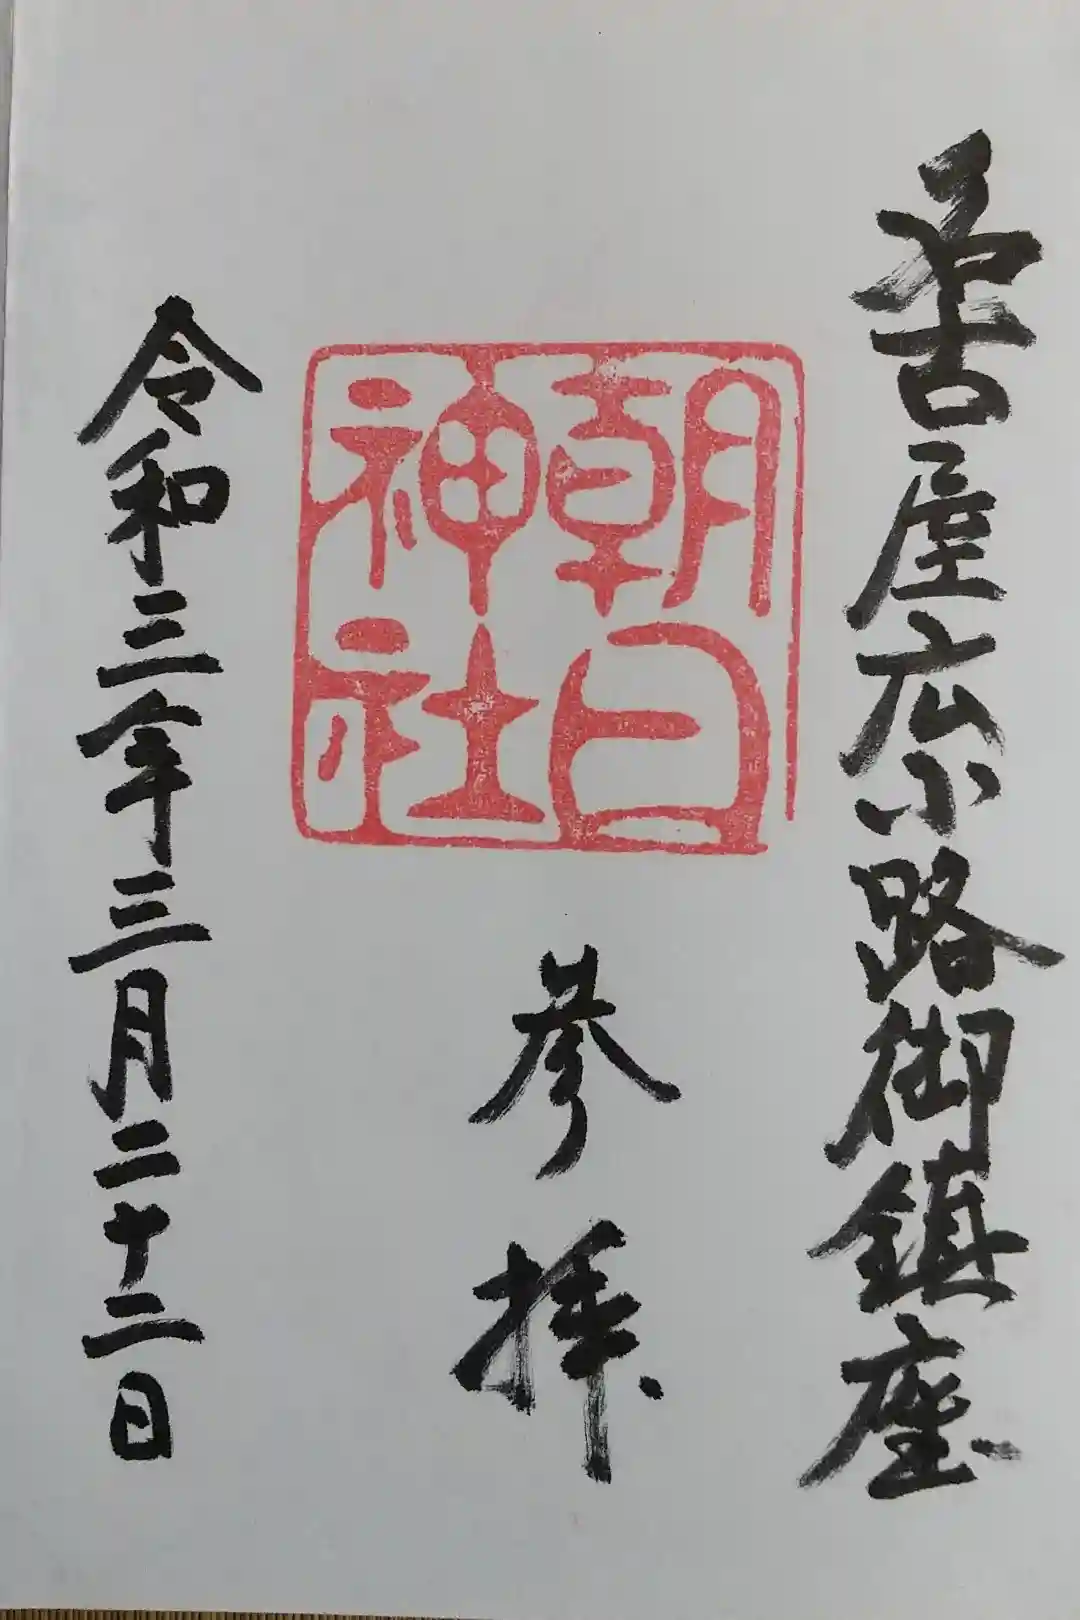 名古屋広小路御鎮座
朝日
神社
参拝
令和三年三月二十二日